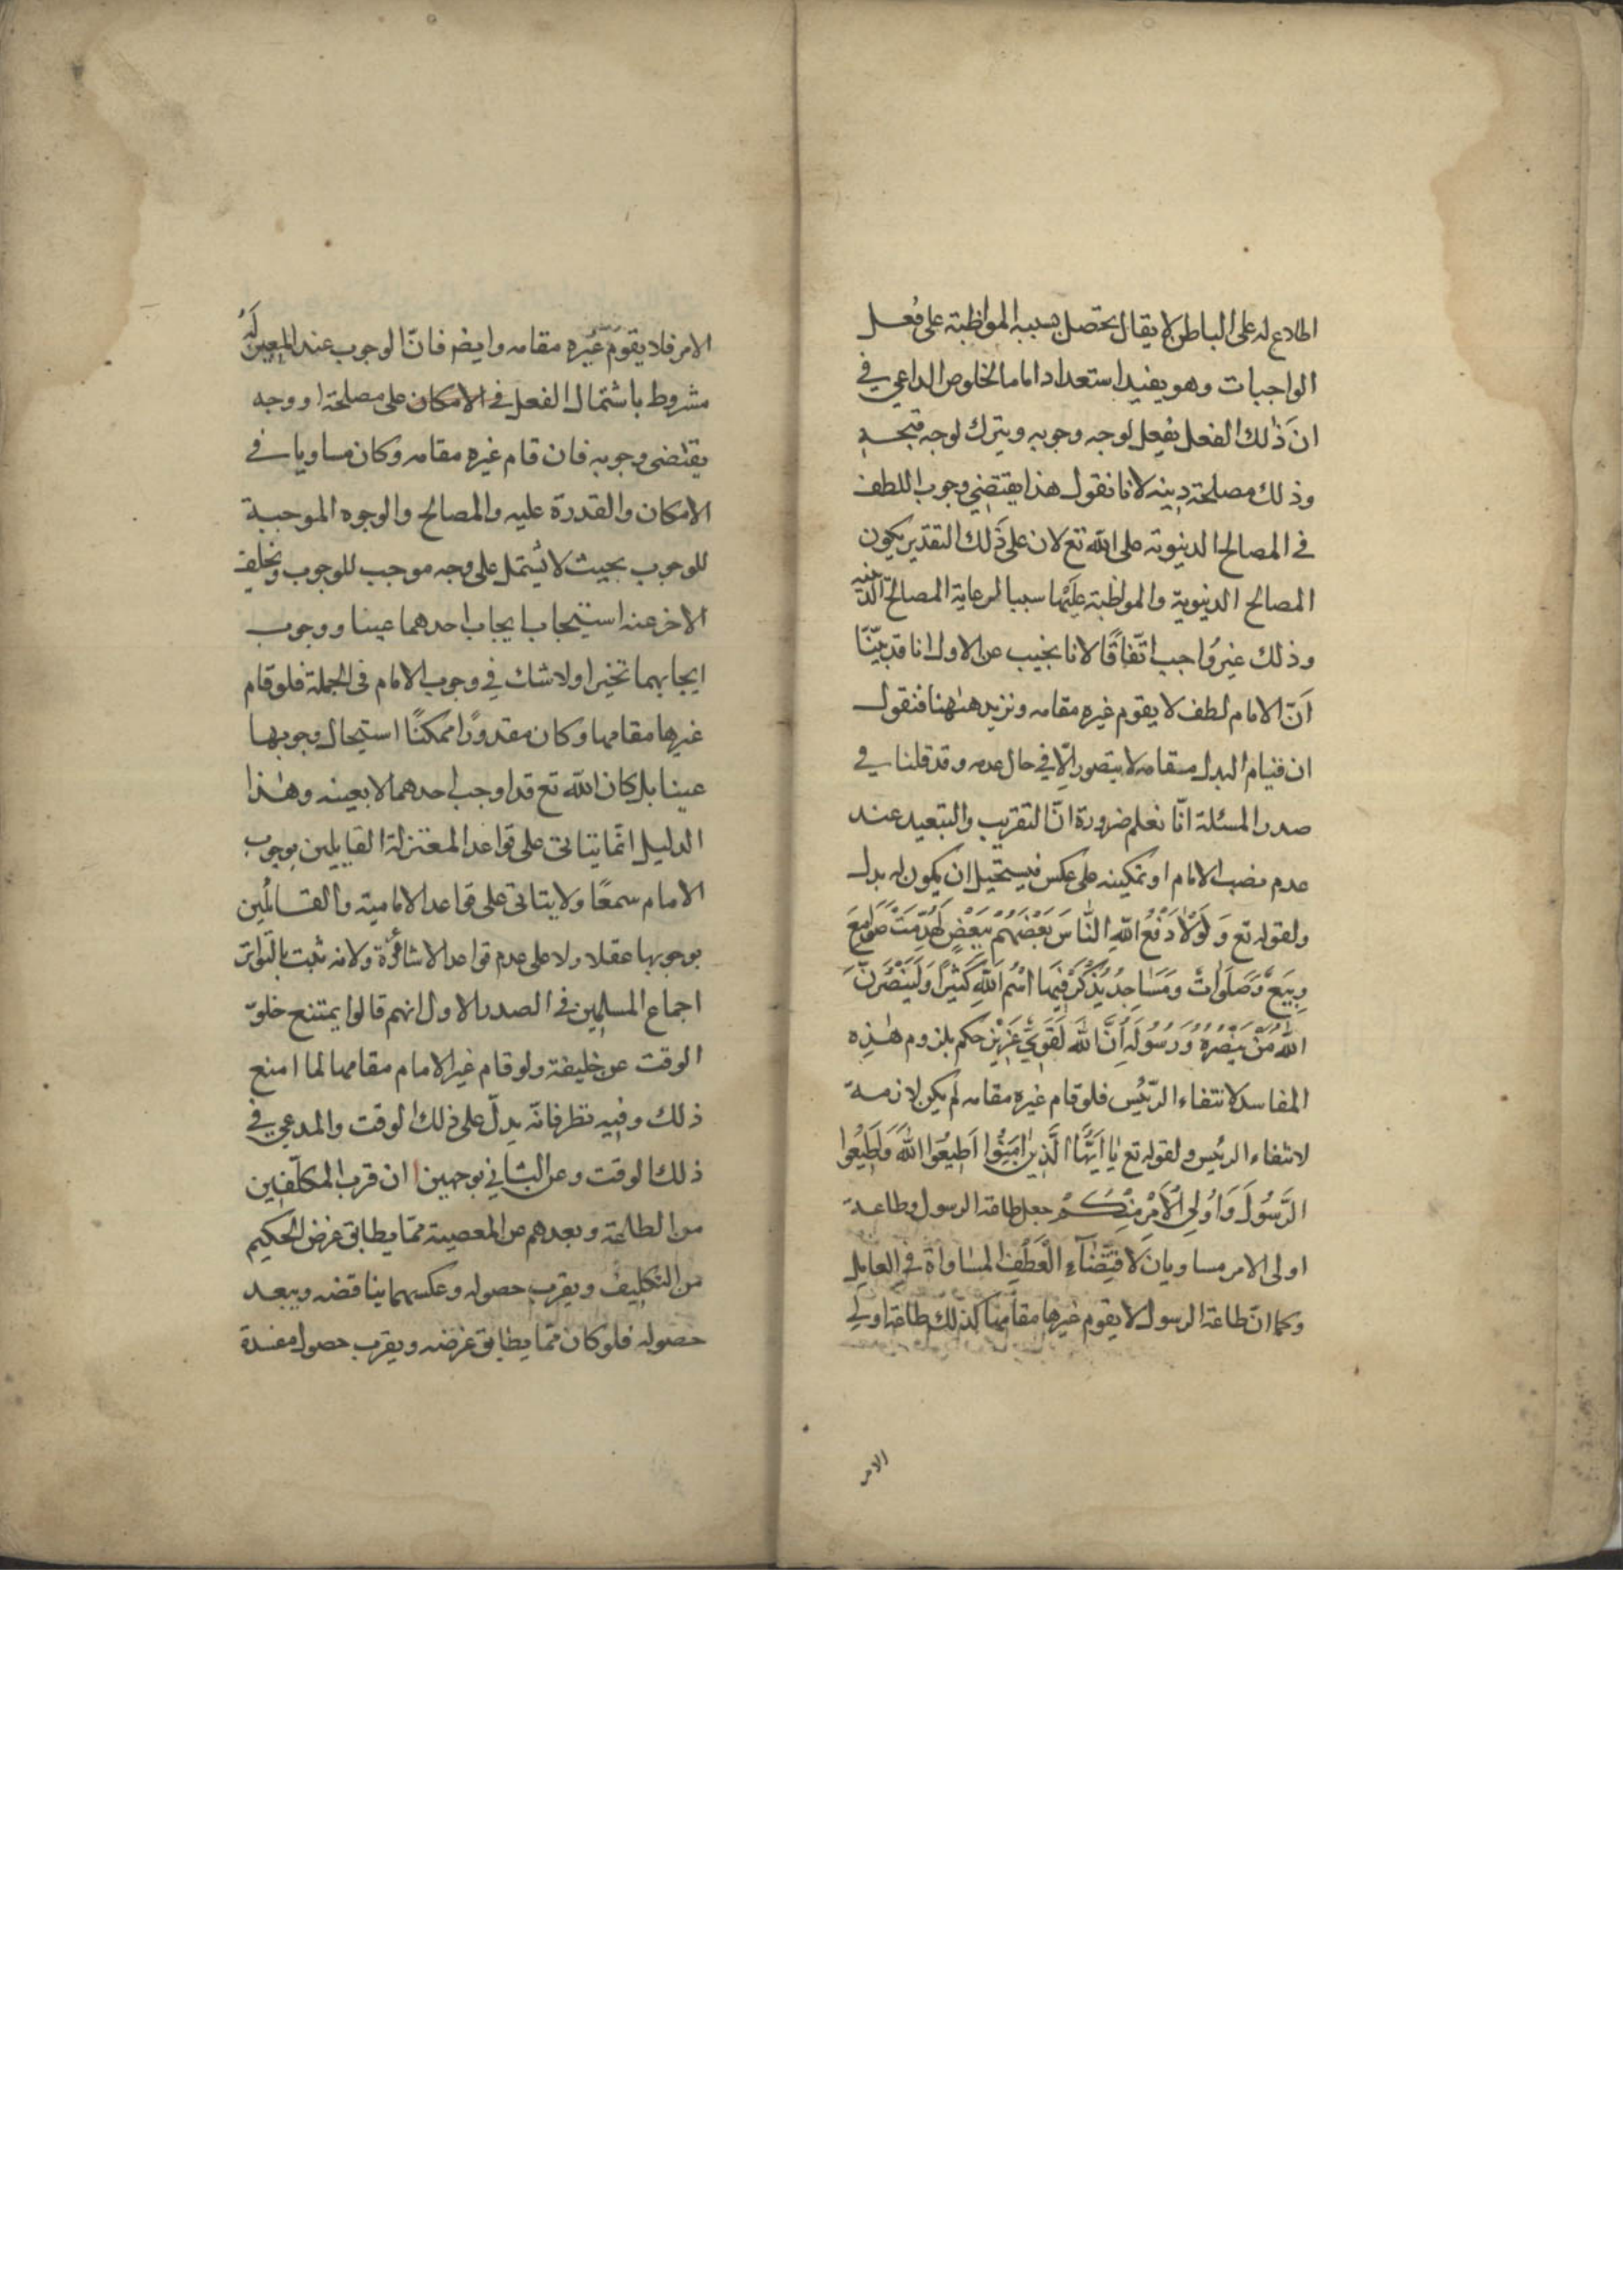 اطلاع له على الباطن لا يقال يحصل بسببه المواظبة على فعل
الواجبات وهو يفيد استعدادا ما لخلوص الداعي في
انّ ذلك الفعل يفعل لوجه وجوبه ويترك لوجه قبحه
وذلك مصلحة دينه لانا نقول هذا يقتضي وجوب اللطف
في المصالح الدنيوية على الله تع لان على ذلك التقدير يكون
المصالح الدنيوية والمواظبة عليها سببا لرعاية المصالح الدينيه
وذلك غير واجب اتّفاقًا لانا نجيب عن الاول انا قد بيّنّا
انّ الامام لطف لا يقوم غيره مقامه ونزيد هٰهنا فنقول
ان قيام البدل مقامه لا يتصور الّا في حال عدمه وقد قلنا في
صدر المسئلة انّا نعلم ضرورة انّ التقريب والتبعيد عند
عدم نصب الامام او تمكينه على عكس فيستحيل ان يكون له بدل
ولقوله تع وَلَوْلَا دَفْعُ اللهِ النَّاسَ بَعْضَهُمْ بِبَعْضٍ لَهُدِّمَتْ صَوَامِعُ
وَبِيَعٌ وَصَلَوَاتٌ وَمَسَاجِدُ يُذْكَرُ فِيهَا اسْمُ اللهِ كَثِيرًا وَلَيَنْصُرَنَّ
اللهُ مَنْ يَنْصُرُهُ وَرَسُولَهُ اِنَّ اللهَ لَقَوِيٌّ عَزِيزٌ حكم بلزوم هٰذِه
المفاسد لانتفاء الرّئيس فلو قام غيره مقامه لم يكن لازمة
لانتفاء الرئيس ولقوله تع يَا اَيُّهَا الَّذِينَ اٰمَنُوا اَطِيعُوا اللهَ وَاَطِيعُوا
الرَّسُولَ وَاُولِي الْاَمْرِ مِنْكُمْ جعل طاعة الرسول وطاعة
اولى الامر مساويان لاقتِضَآءِ الْعَطْفِ المساواة في العامل
وكما انّ طاعة الرسول لا يقوم غيرها مقامها كذلك طاعة اولي
الامر
الامر فلا يقوم غيره مقامه وايضر فانّ الوجوب عند المعتزلَه
مشروط باشتمال الفعل في الامكان على مصلحة او وجه
يقتضى وجوبه فان قام غيره مقامه وكان مساويا في
الامكان والقدرة عليه والمصالح والوجوه الموجبة
للوجوب بحيث لا يُشتمل على وجه موجب للوجوب ويخلف
الاخر عنه ايجاب احدهما عينا ووجوب
ايجابهما تخيرا ولا شك في وجوب الامام في الجملة فلو قام
غيرها مقامها وكان مقدورًا ممكنًا استحال وجوبها
عينا بل كان الله تع قد اوجب احدهما لا بعينه وهٰذا
الدليل انّما يتاتى على قواعد المعتزلة القايلين بوجوب
الامام سمعًا ولا يتاتى على قواعد الامامية والقائلين
بوجوبها عقلا ولا على عدم قواعد الاشاعرة ولانه ثبت بالتواتر
اجماع المسلمين في الصدر الاول انهم قالوا يمتنع خلوّ
الوقت عن خليفة ولو قام غير الامام مقامها لما امنع
ذلك وفيه نظر فانّه يدلّ على ذلك الوقت والمدعي في
ذلك الوقت وعن الثاني بوجهين ا ان قرب المكلّفين
من الطاعة وبعدهم عن المعصية ممّا يطابق غرض الحكيم
من التكليف ويقرب حصوله وعكسهما يناقضه ويبعد
حصوله فلو كان ممّا يطابق غرضه ويقرب حصوله مفسدة